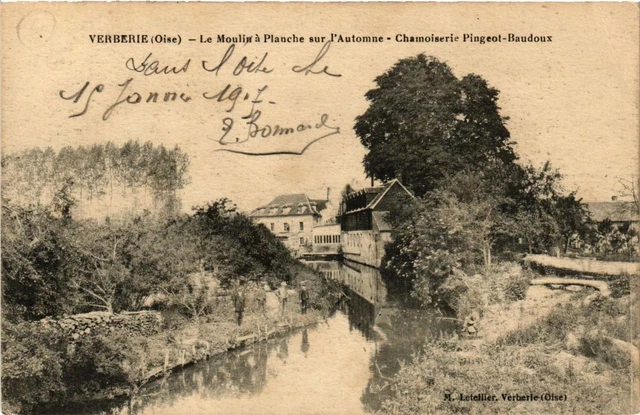 VERBERIE (Oise) - Le Moulin à Planche sur l'Automne - Chamoiserie Pingeot-Baudoux
Dans l'Oise le
15 Janvier 1917
Bonnard
M. Letellier, Verberie (Oise)